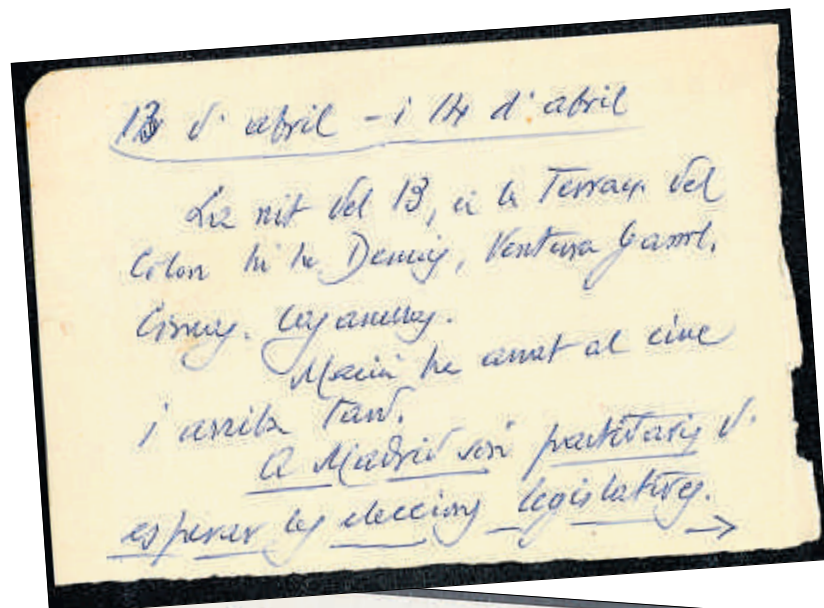 13 d'abril - i 14 d'abril
La nit del 13, a la Terraça del
Colon hi ha Demiy, Ventura Gassol.
Maciá ha anat al cine
i arriba Tard.
A Madrid són partidaris d'
esperar les eleccions legislatives.
→